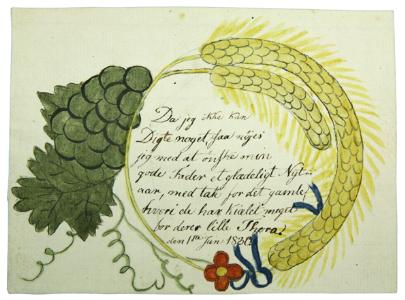 Da jeg ikke kan
Digte noget, saa nøjes
jeg med at ønske min
gode Fader et glædeligt Nyt-
aar, med tak for det gamle
hvori de har kiælet meget
for deres lille Thora.
den 1ste Jan